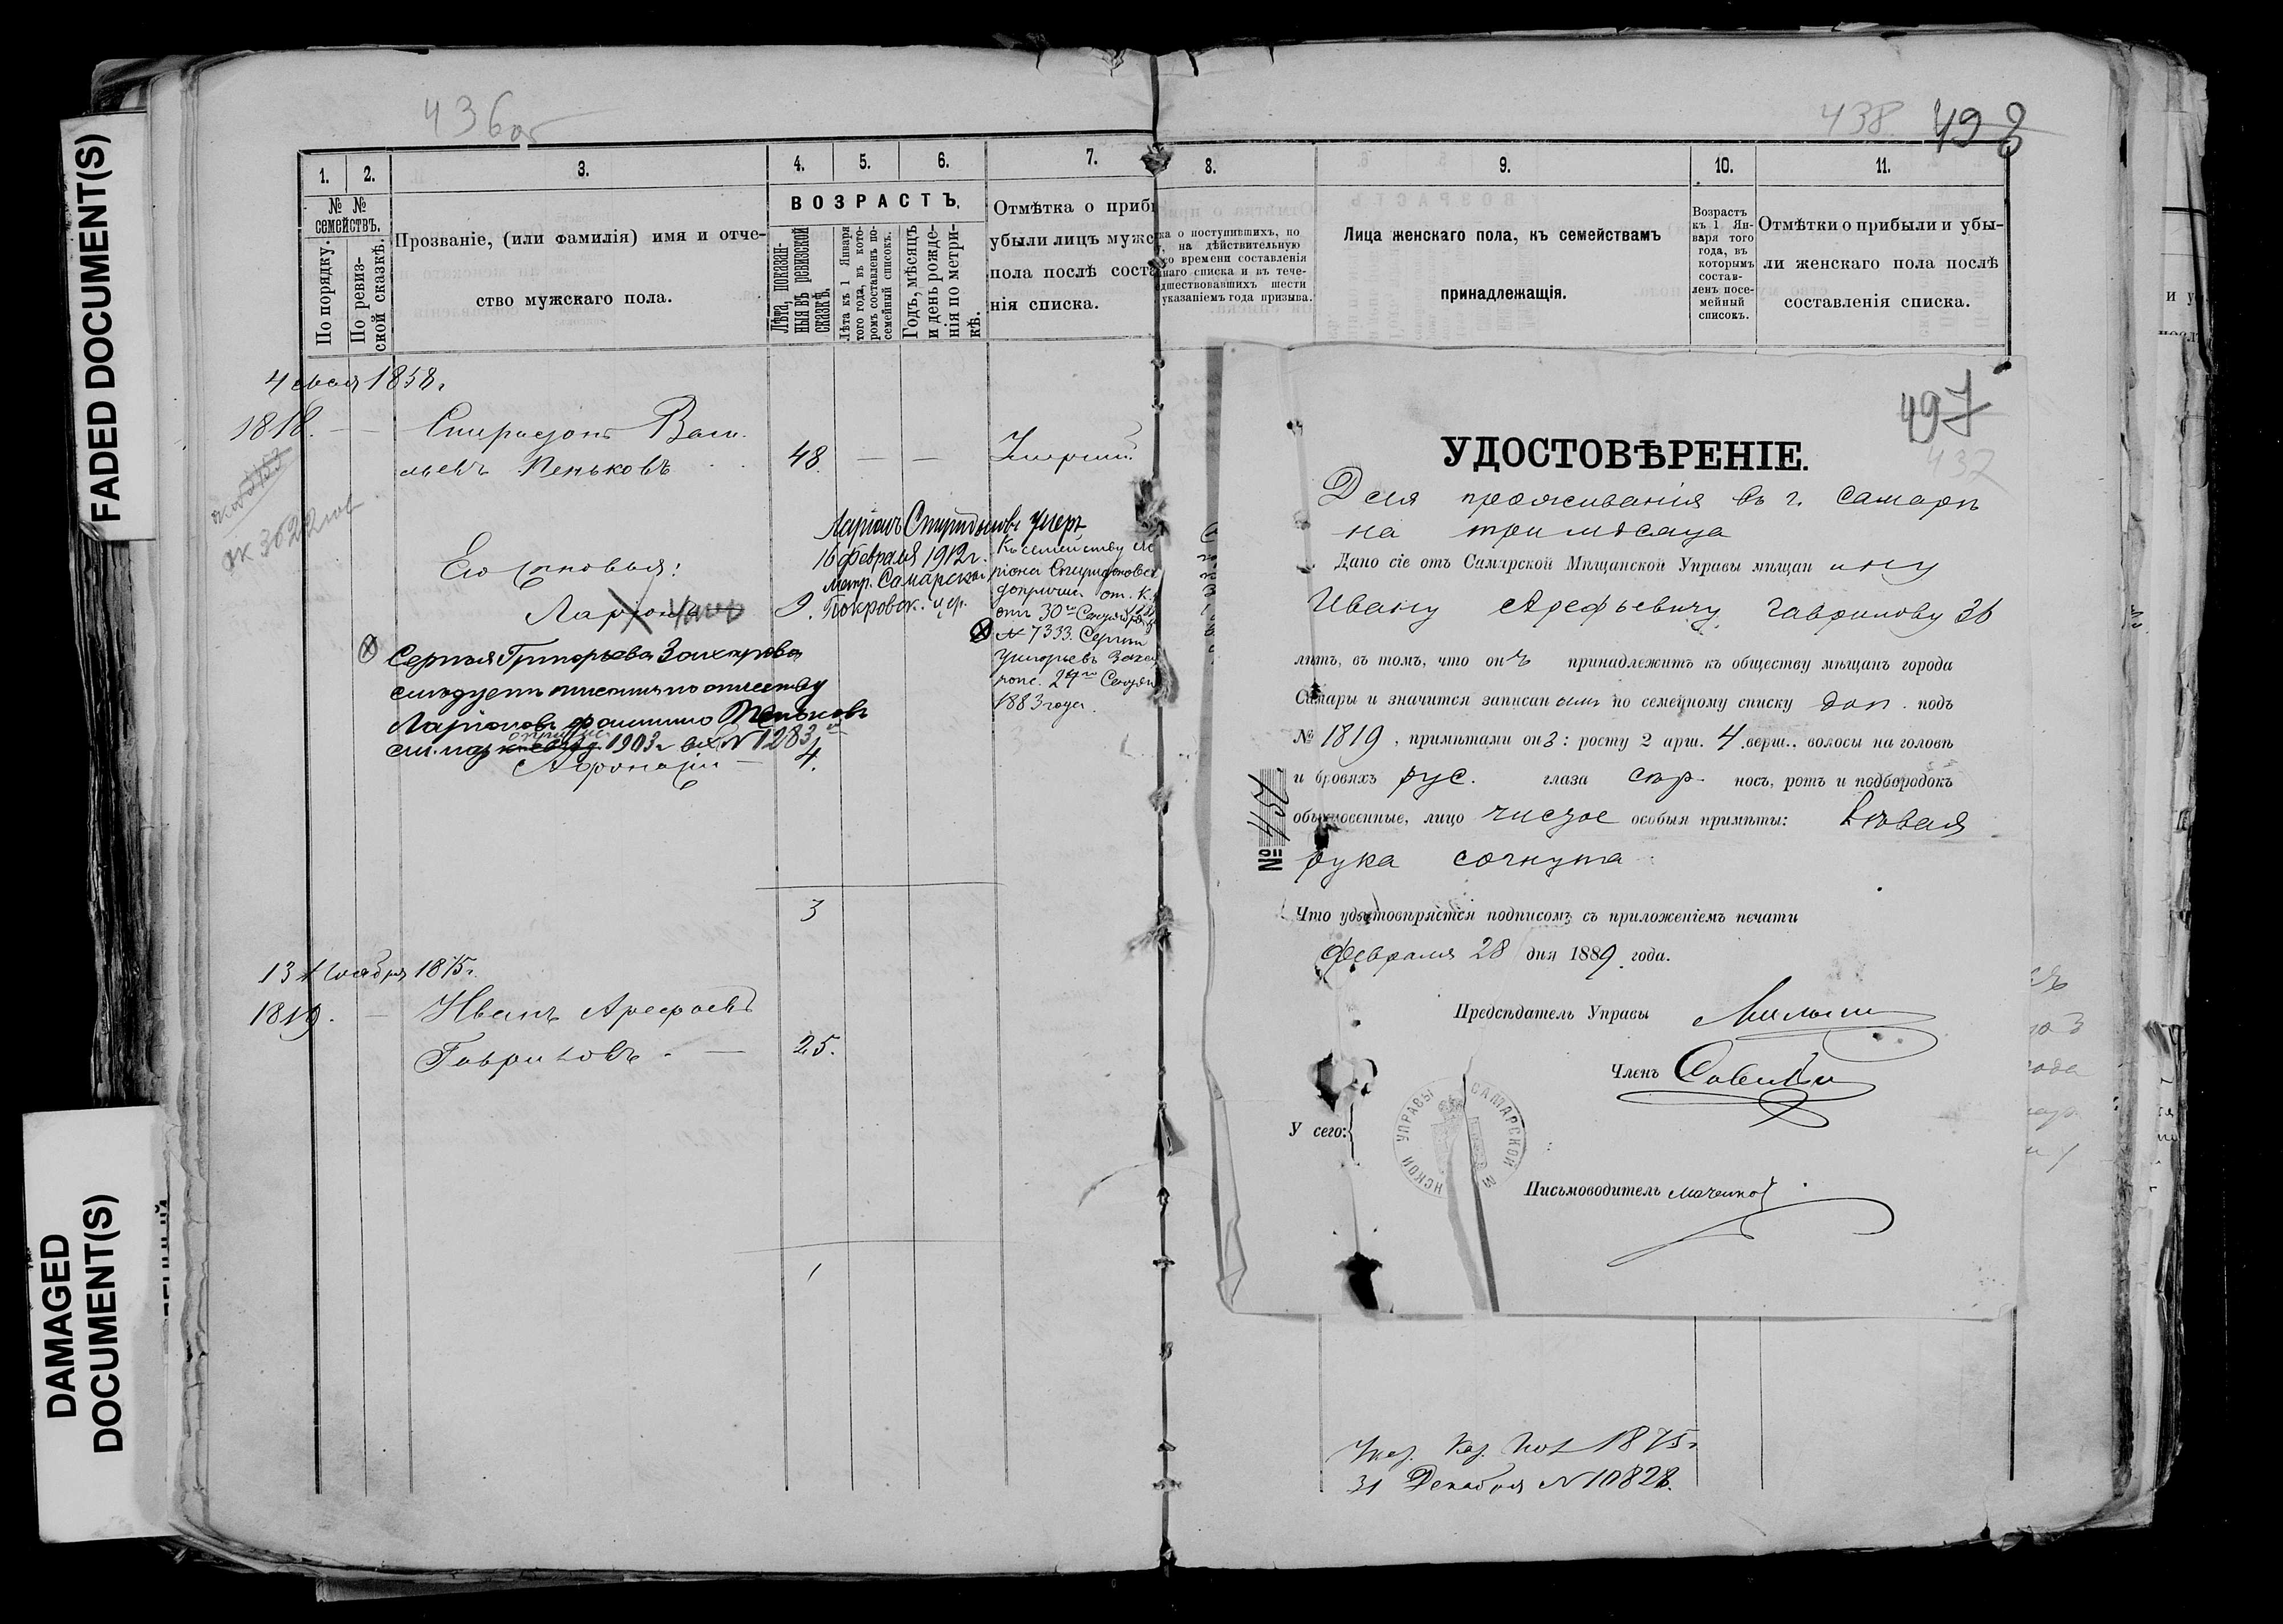 FADED DOCUMENT(S)
DAMAGED
DOCUMENT(S)
436об
1.
2.
3.
4.
5.
6.
7.
№ №
семействъ.
По порядку.
По ревиз-
ской сказкѣ.
Прозваніе, (или фамилія) имя и отче-
ство мужскаго пола.
ВОЗРАСТЪ.
Лѣта, показан-
ныя въ ревизской
сказкѣ.
Лѣта къ 1 Января
того года, въ кото-
ромъ составленъ по-
семейный списокъ.
Годъ, мѣсяцъ
и день рожде-
нія по метри-
кѣ.
Отмѣтка о приб
убыли лицъ мужс
пола послѣ соста
нія списка.
4 мая 1858 г.
1818. Спиридонъ Васи-
льевъ Пеньковъ 48. Умеръ
Его сыновья:
Ларіонъ 9.
Ларіонъ Спиридоновъ умеръ
16 февраля 1912 г.
метр. Самарской
Покровск. цер.
Къ семейству Ла
ріона Спиридонова
причис. от. К.
отъ 30 Сентября
№ 7333. Сергѣй
Григорьевъ Заха
рож. 24 Сентя
1883 года.
Сергѣя Григорьева Захарова
слѣдуетъ писать по отчеству
Ларіоновъ фамилію Пеньковъ
1903 г вх № 1283
4.
3
13 Ноября 1875 г.
1819. Иванъ Арефьевъ
Гавриловъ 25.
1
438
498
8.
9.
10.
11.
ка о поступившихъ, по
, на дѣйствительную
о времени составленія
наго списка и въ тече-
дшествовавшихъ шести
указаніемъ года призыва.
Лица женскаго пола, къ семействамъ
принадлежащія.
Возрастъ
къ 1 Ян-
варя того
года, въ
которымъ
состав-
ленъ посе-
мейный
списокъ.
Отмѣтки о прибыли и убы-
ли женскаго пола послѣ
составленія списка.
497
437
УДОСТОВѢРЕНІЕ.
Для проживанія въ г. Самарѣ
на три мѣсяца
Дано сіе отъ Самарской Мѣщанской Управы мѣщан ину
Ивану Арефьевичу Гаврилову 36
лѣтъ, въ томъ, что онъ принадлежитъ къ обществу мѣщанъ города
Самары и значится записан нымъ по семейному списку доп. подъ
№ 1819, примѣтами онъ: росту 2 арш. 4 верш., волосы на головѣ
и бровяхъ рус. глаза сѣр. носъ, ротъ и подбородокъ
обыкновенные, лицо чистое особыя примѣты: Лѣвая
рука согнута
№ 454
Что удостовѣряется подписомъ съ приложеніемъ печати
Февраля 28 дня 1889 года.
Предсѣдатель Управы
Членъ
У сего:
УПРАВЫ САМАРСКОЙ М
НСКОЙ
Письмоводитель
Указ. Каз. Пал 1875 г
31 Декабря № 10828.